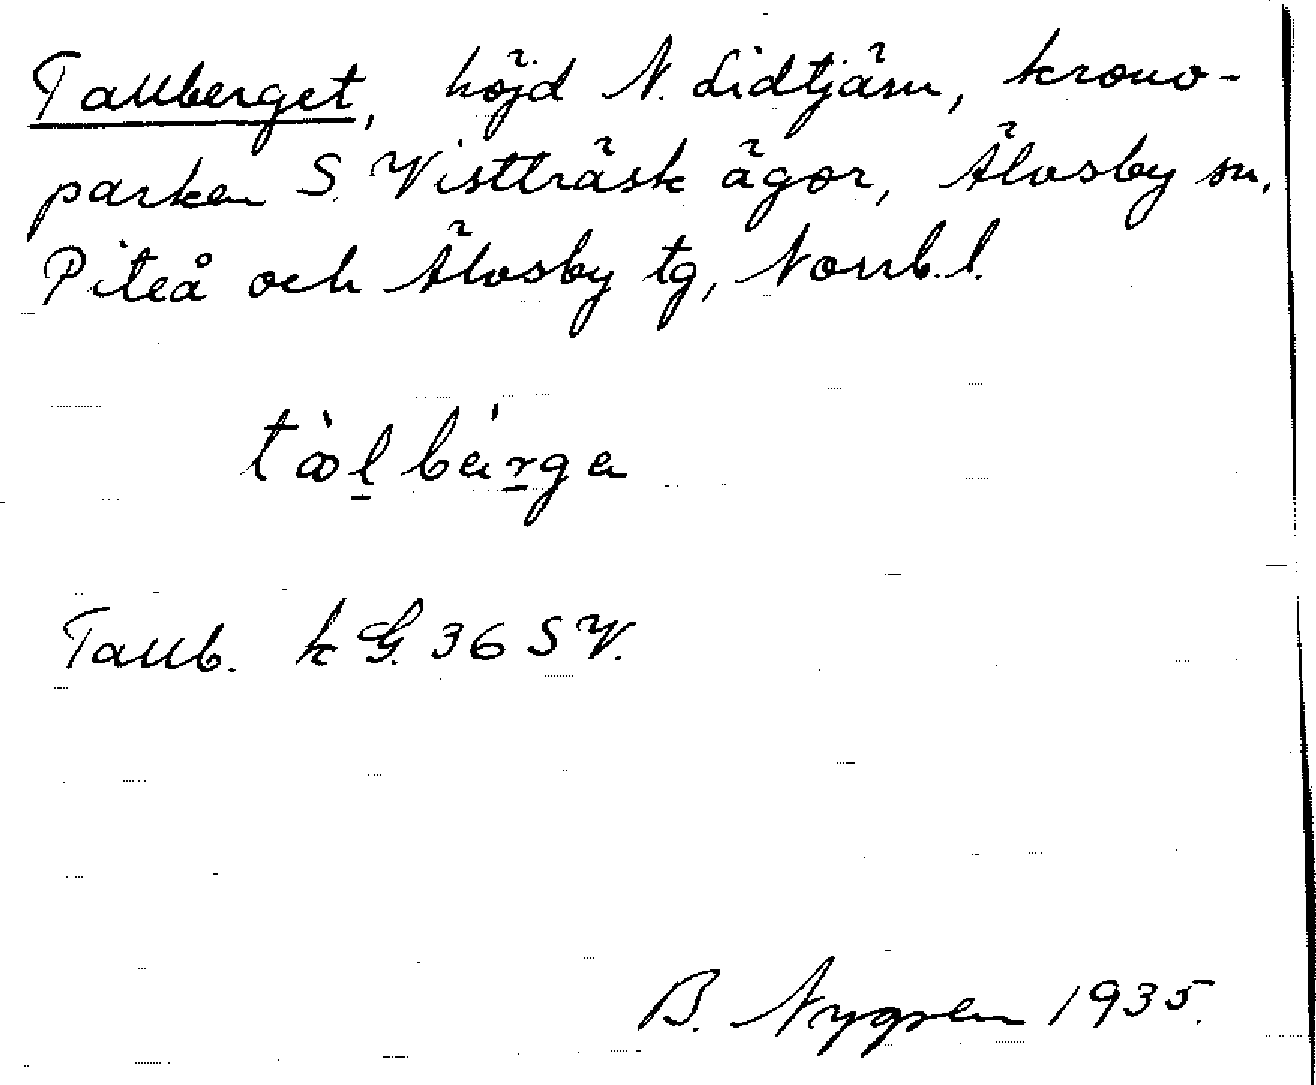 Tallberget, höjd N. Lidtjärn, krono-
parken S. Vistträsk ägor, Älvsby sn,
Piteå och Älvsby tg, Norrb. l.
Tallb. k G. 36 SV.
B. Nygren 1935.